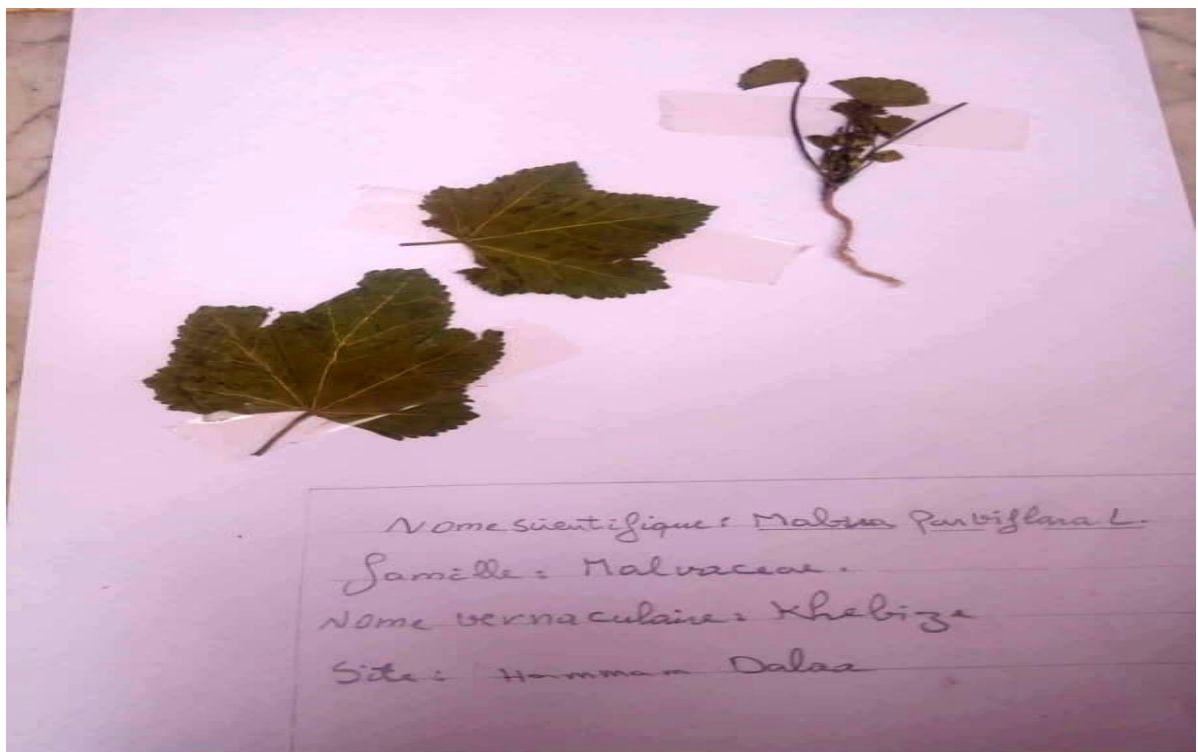 Nome scientifique : Malva Parviflara L.
famille : Malvaceae.
Nome vernaculaire : Khebize
Site : Hammam Dalaa